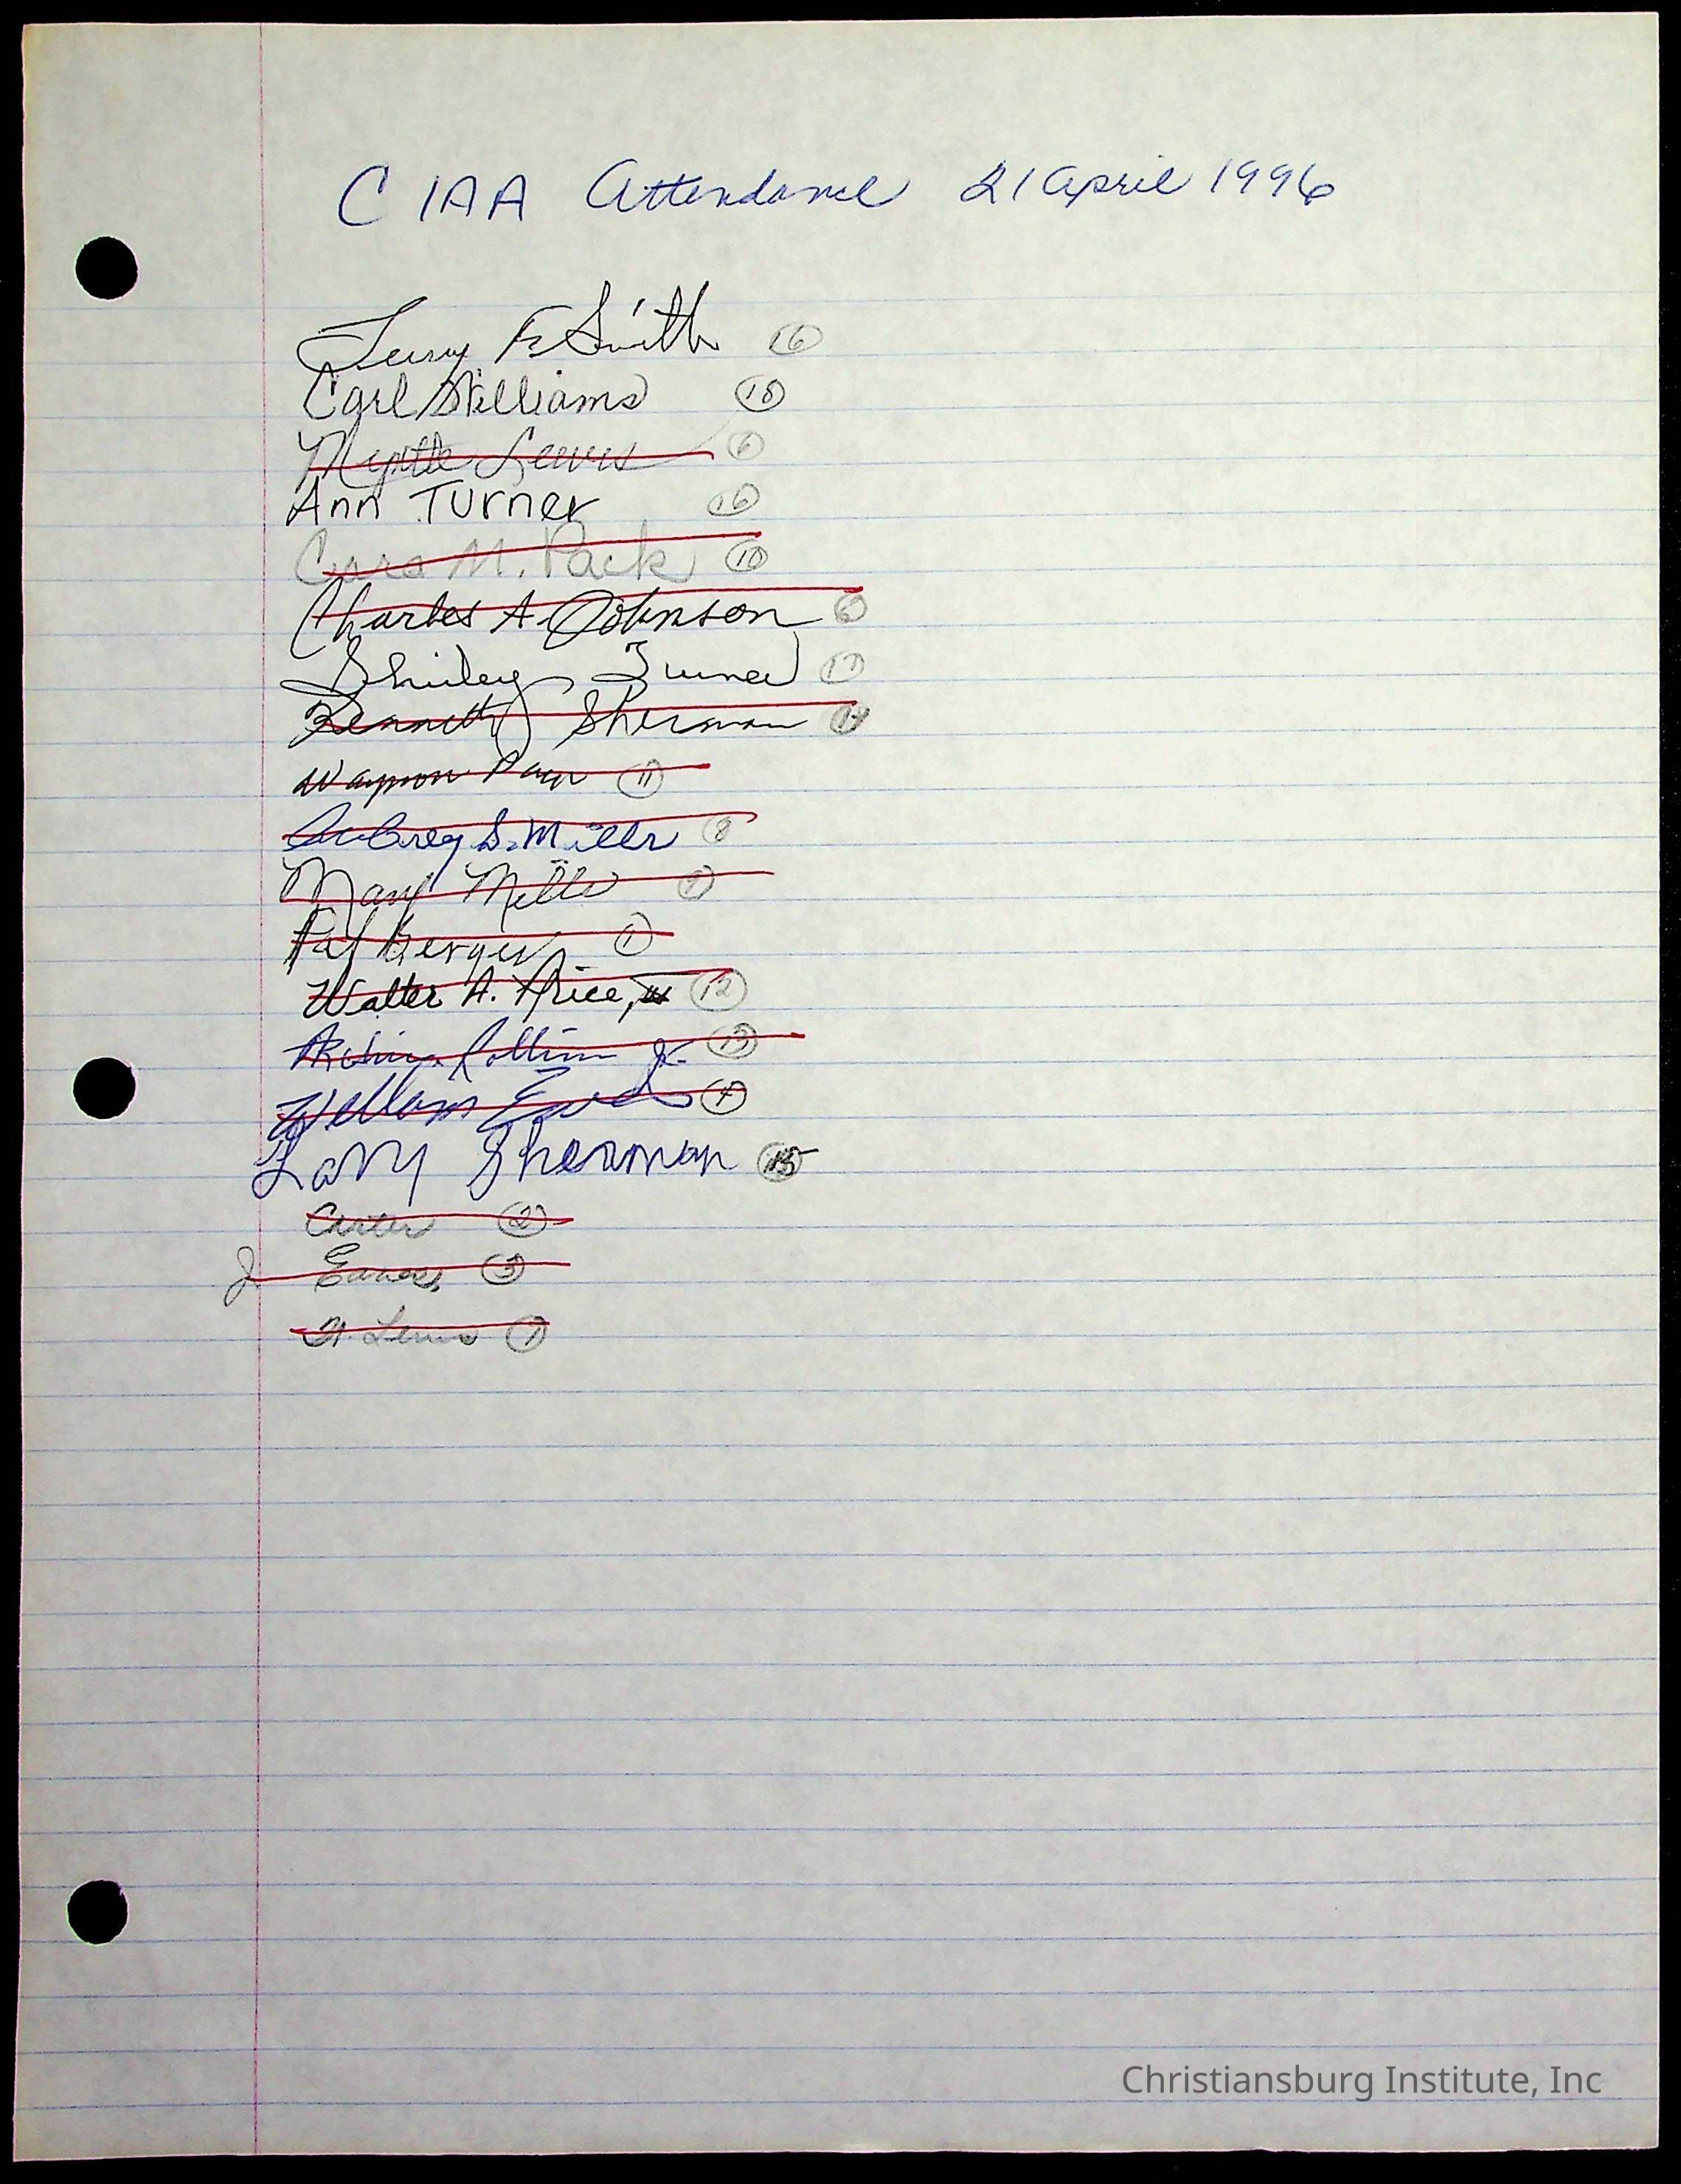 C IAA Attendance 21 April 1996
Terry F Smith 16
Carl Williams 18
Myrtle Lewis 6
Ann Turner 16
Cora M. Pack 10
Charles A. Johnson
Shirley Turner 17
Kenneth Sherman 14
Waymon Pack 11
Aubrey S. Mills 8
Mary Mills 9
Pat 1
Walter A. Price, III 12
Collins Jr. 13
William 4
Larry Sherman 15
Carter 2
J. Eaves 3
A. Lewis 7
Christiansburg Institute, Inc